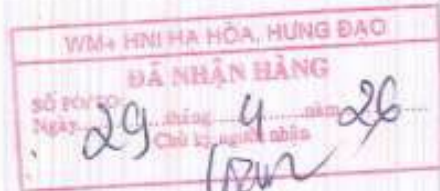 WM+ HNI HẠ HÒA, HƯNG ĐẠO
ĐÃ NHẬN HÀNG
SỐ PO/TO:
Ngày 29 tháng 4 năm 26
Chữ ký người nhận